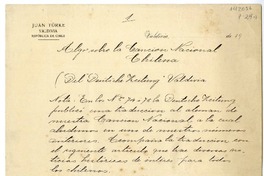 1
JUAN YÖRKE
VALDIVIA
REPUBLICA DE CHILE
Valdivia, de 19
Algo sobre la Cancion Nacional
Chilena
(Del Deutsche Zeitung Valdivia
Nota: En los Nº 74 - 78 la Deutsche Zeitung
publicó una traduccion al aleman de
nuestra Cancion Nacional a la cual
aludimos en uno de nuestros números
anteriores. la traduccion, con
el siguiente articulo que
ticias históricas de interés para todos
los chilenos.